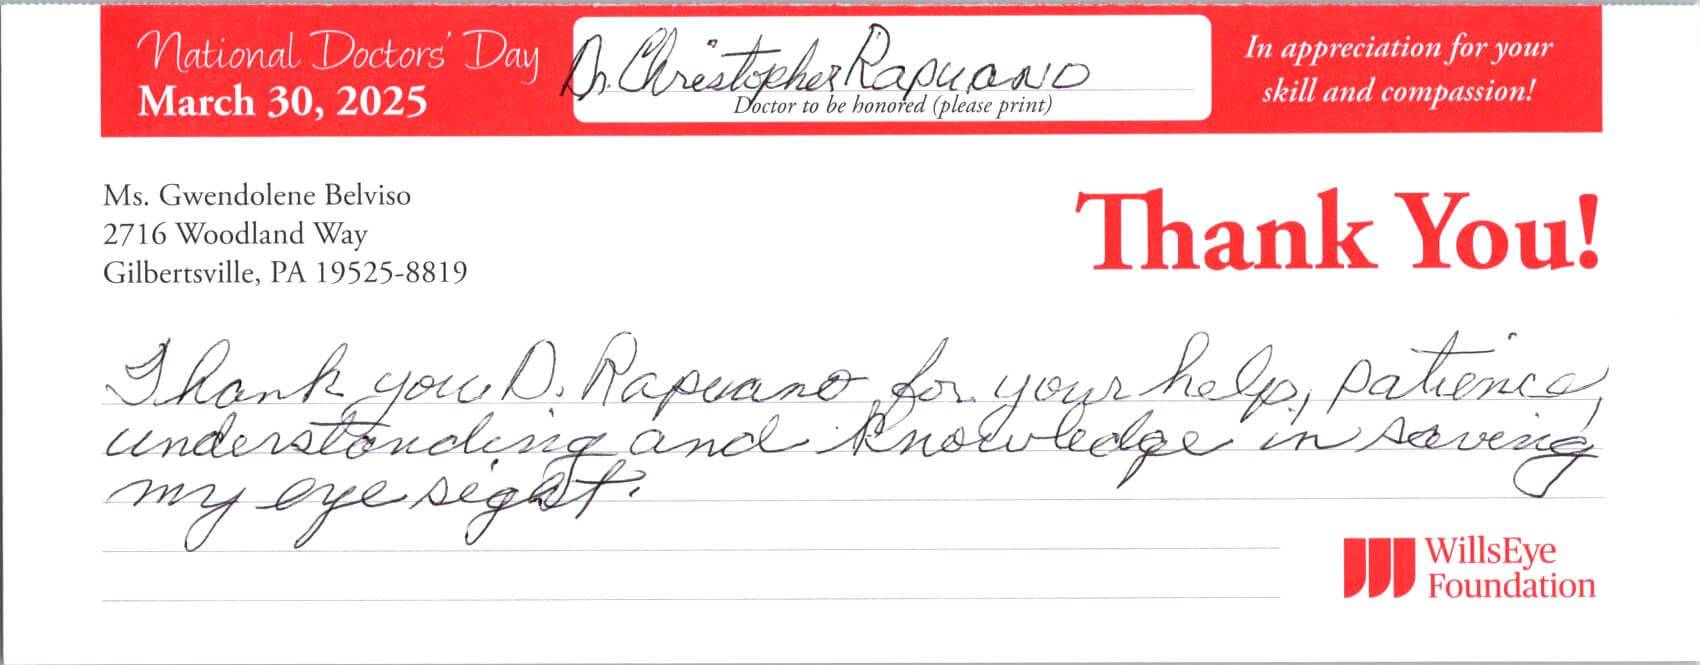 National Doctors' Day
March 30, 2025
Dr. Christopher Rapuano
Doctor to be honored (please print)
In appreciation for your
skill and compassion!
Ms. Gwendolene Belviso
2716 Woodland Way
Gilbertsville, PA 19525-8819
Thank You!
Thank you D. Rapuano for your help, patience,
understanding and knowledge in saving
my eye sight.
WillsEye
Foundation